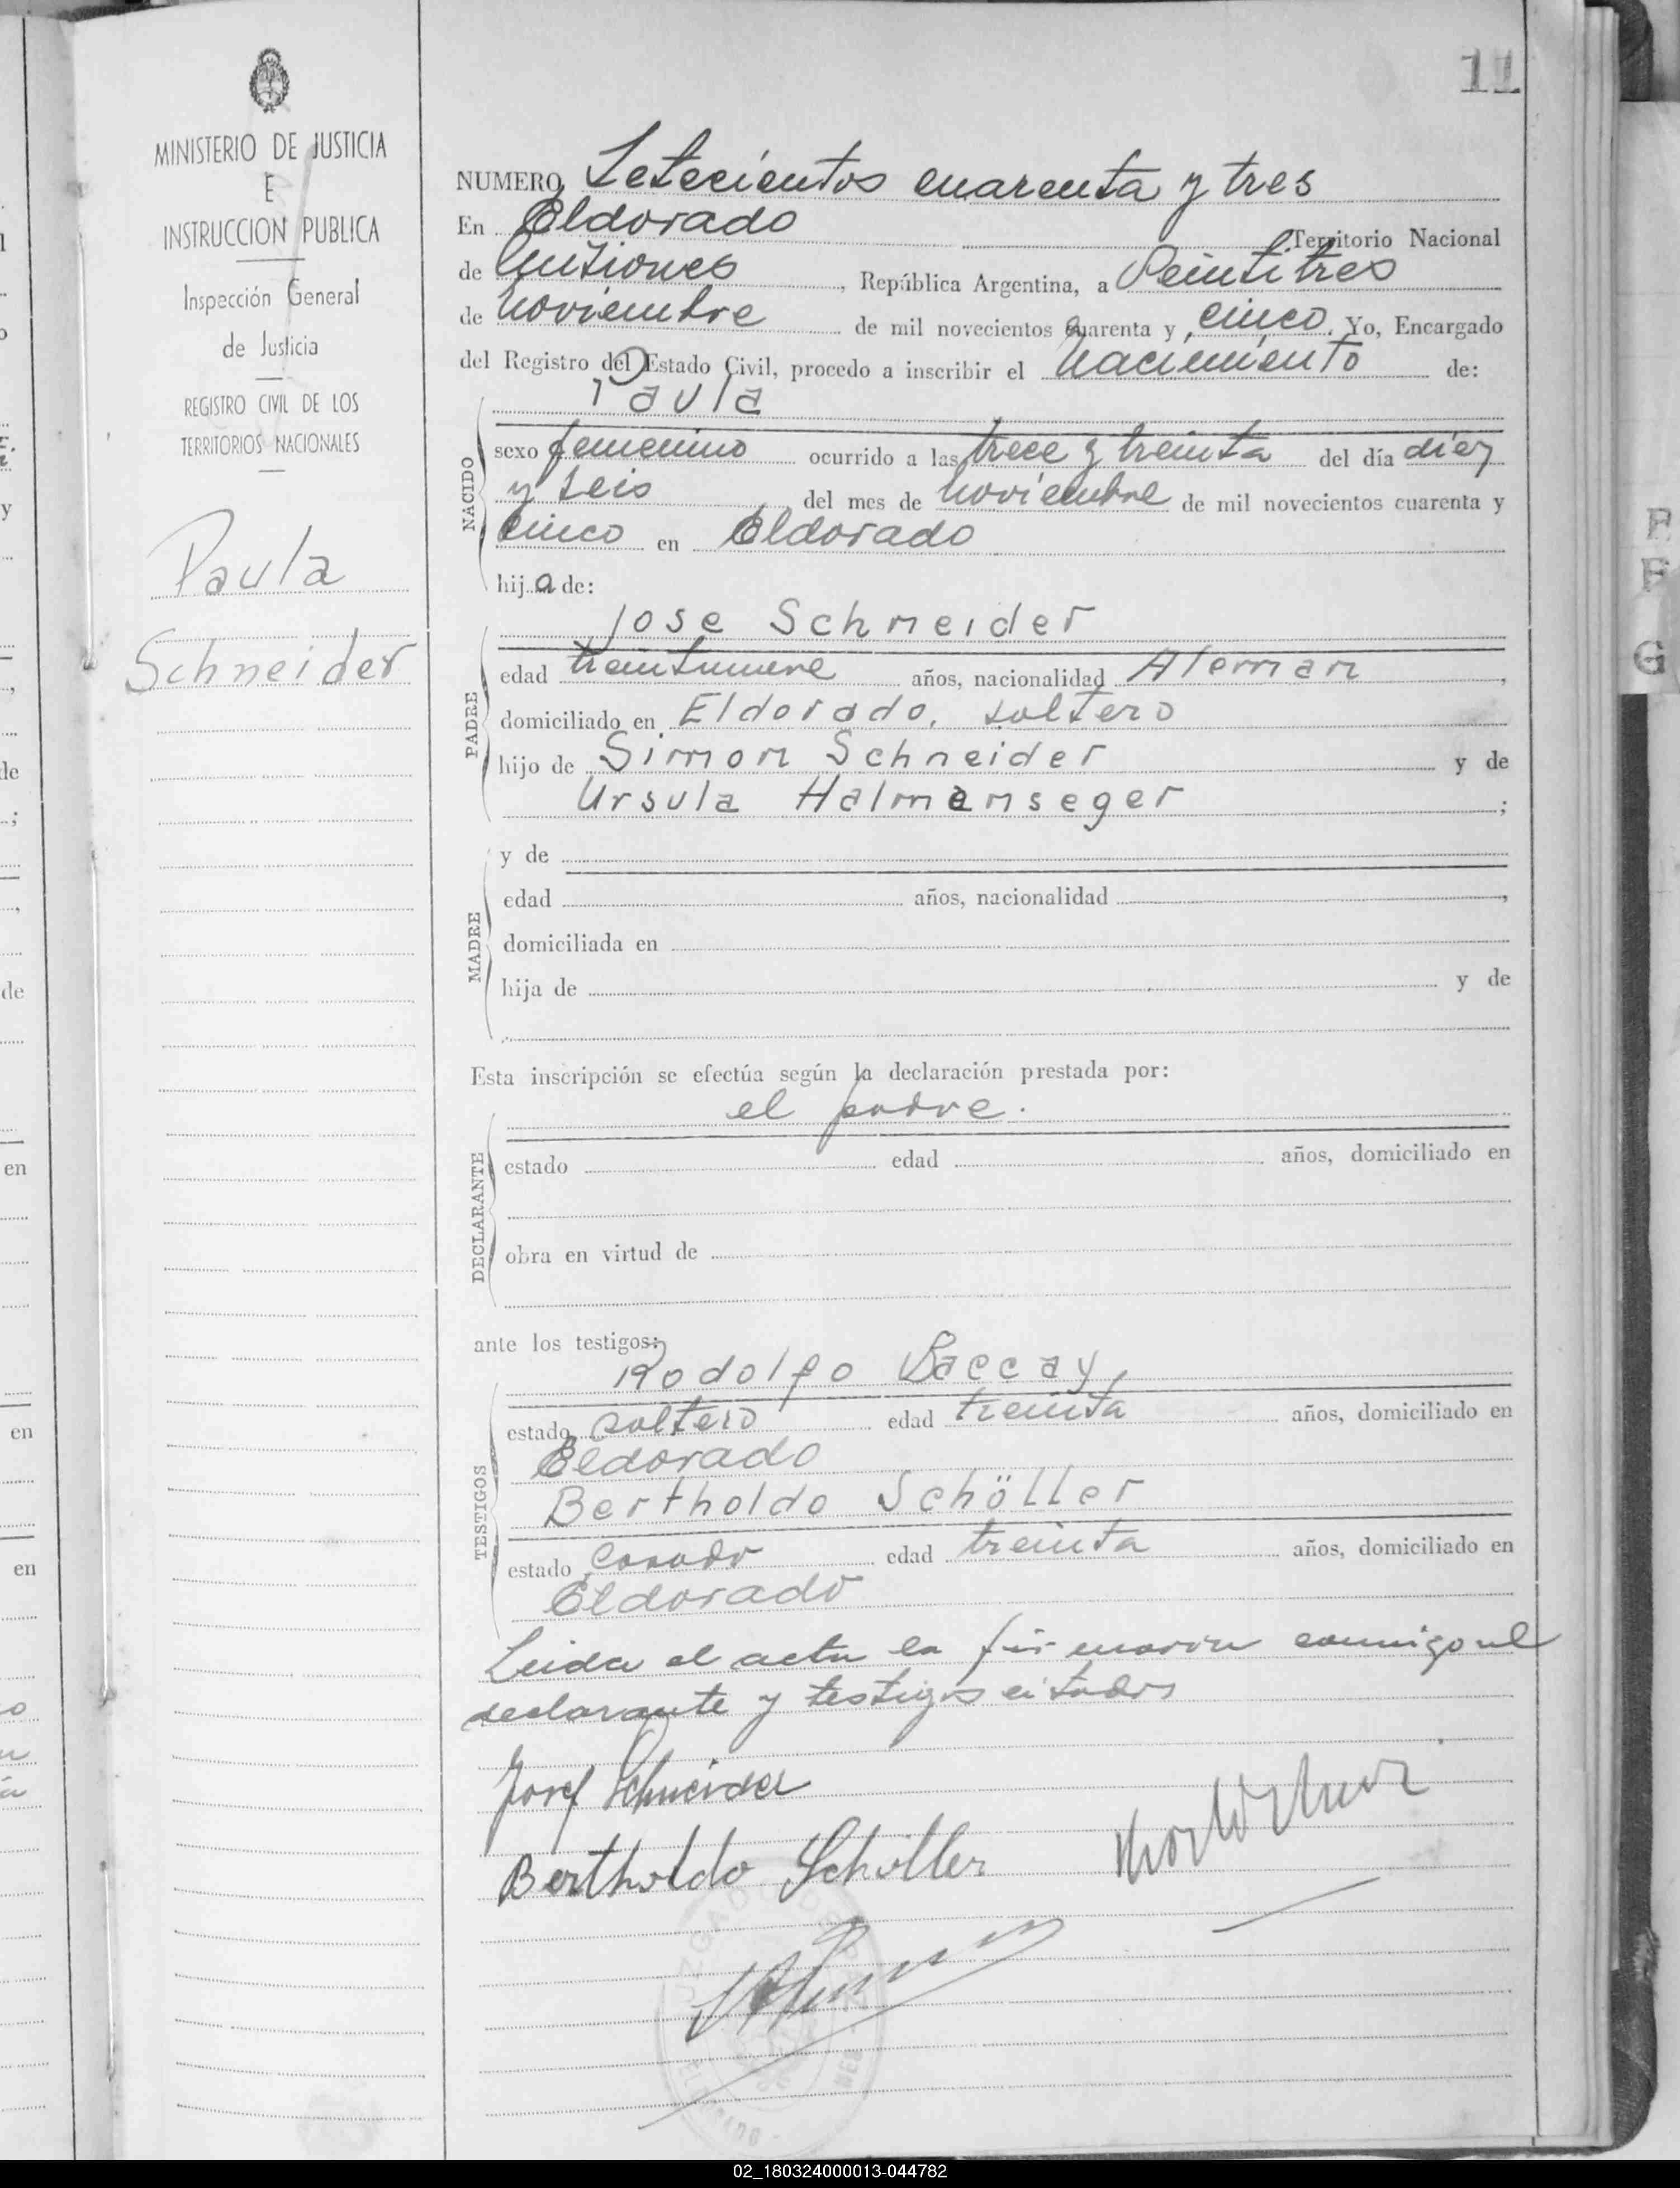 11
MINISTERIO DE JUSTICIA
E
INSTRUCCION PUBLICA
Inspección General
de Justicia
REGISTRO CIVIL DE LOS
TERRITORIOS NACIONALES
Paula
Schneider
NUMERO Setecientos cuarenta y tres
En Eldorado Territorio Nacional
de Misiones, República Argentina, a Veintitres
de noviembre de mil novecientos cuarenta y cinco. Yo, Encargado
del Registro del Estado Civil, procedo a inscribir el nacimiento de:
NACIDO
Paula
sexo femenino ocurrido a las trece y treinta del día diez
y seis del mes de noviembre de mil novecientos cuarenta y
cinco en Eldorado
hija de:
PADRE
Jose Schneider
edad treintinueve años, nacionalidad Aleman,
domiciliado en Eldorado, soltero
hijo de Simon Schneider y de
Ursula Halmanseger;
MADRE
y de
edad años, nacionalidad,
domiciliada en
hija de y de
Esta inscripción se efectúa según la declaración prestada por:
DECLARANTE
el padre.
estado edad años, domiciliado en
obra en virtud de
ante los testigos:
TESTIGOS
Rodolfo
estado soltero edad treinta años, domiciliado en
Eldorado
Bertholdo Schöller
estado casado edad treinta años, domiciliado en
Eldorado
Leida el acta la firmaron conmigo el
declarante y testigos citados
Josef Schneider
Bertholdo Schöller
02_180324000013-044782